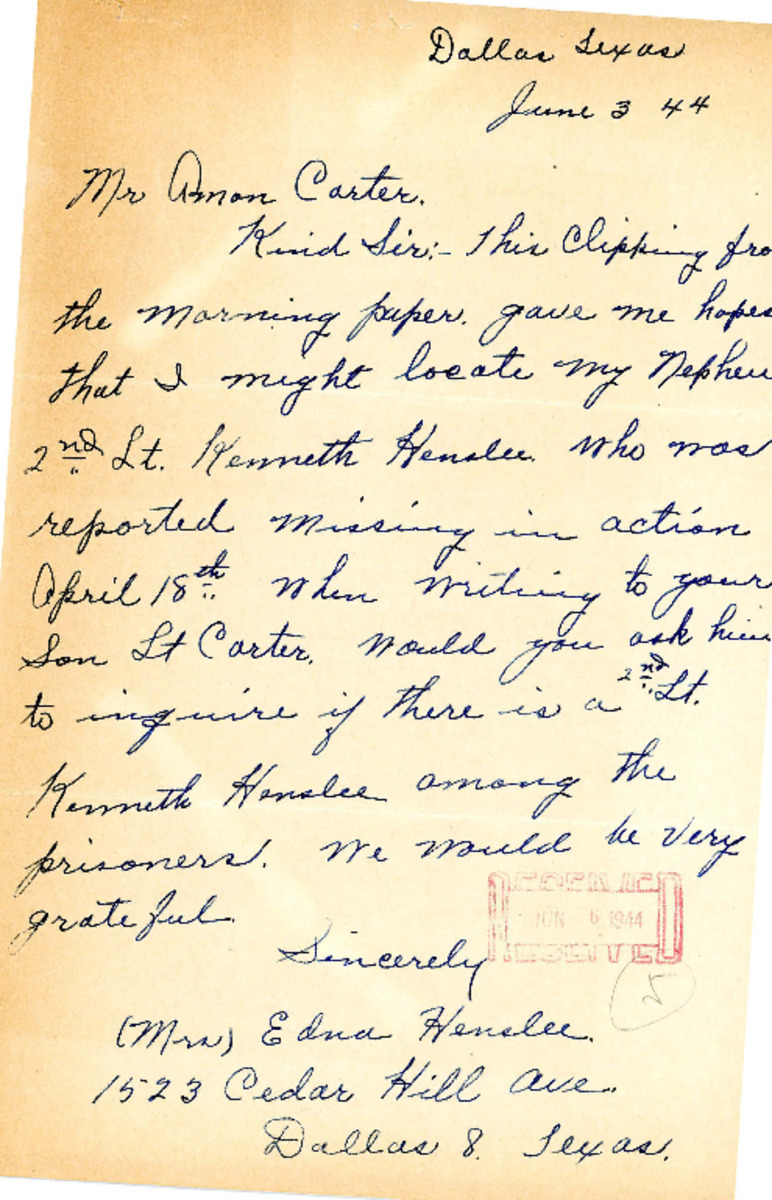 Dallas Texas
June 3 44
Mr Amon Carter.
Kind Sir:- This Clipping fro
the morning paper. gave me hopes
that I might locate my Nephew
2nd Lt. Kenneth Henslee. Who was
reported missing in action
April 18th When writing to your
Son Lt Carter. Would you ask him
to inquire if there is a 2nd Lt.
Kenneth Henslee among the
prisoners. We would be very
grateful.
RECEIVED
JUN 6 1944
Sincerely
(Mrs) Edna Henslee.
1523 Cedar Hill Ave.
Dallas 8. Texas.